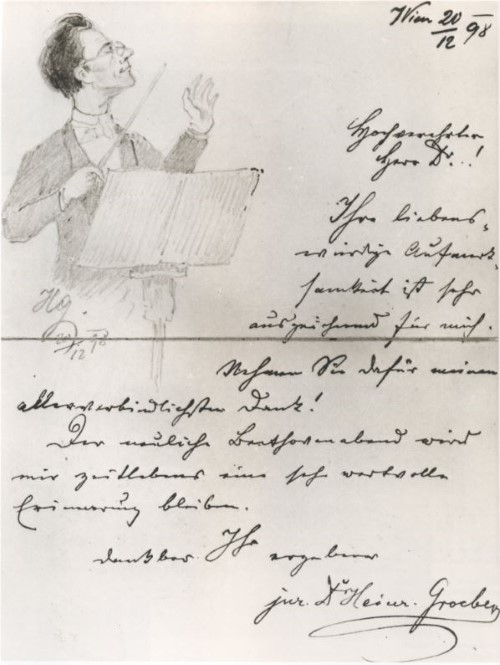 Wien 20/12 98
Hochverehrter
Herr Dr...!
Ihre liebens-
würdige Aufmerk-
samkeit ist sehr
auszeichnend für mich.
Hg.
12 98
Nehmen Sie dafür meinen
allerverbindlichsten Dank!
Der neuliche Beethovenabend wird
mir zeitlebens eine sehr wertvolle
Erinnerung bleiben.
dankbar Ihr ergebener
jur. Dr Heinr. Groeber